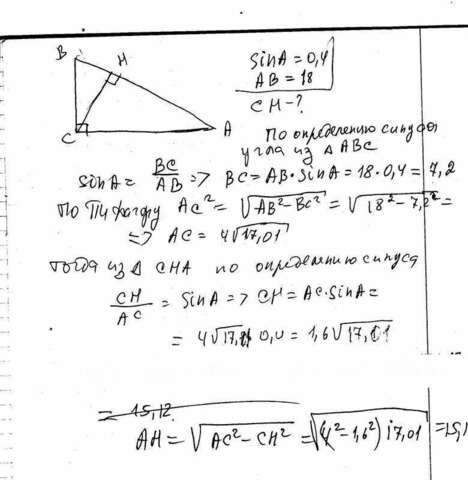 B H
sinA = 0,4
AB = 18
CH - ?
C A
По определению синуса
угла из Δ ABC
sinA = BC/AB => BC = AB·sinA = 18·0,4 = 7,2
По Пифагору AC² = √AB² - BC² = √18² - 7,2² =
=> AC = 4√17,01
Тогда из Δ CHA по определению синуса
CH/AC = sinA => CH = AC·sinA =
= 4√17,01 0,4 = 1,6√17,01
= 15,12
AH = √AC² - CH² = √(4² - 1,6²) 17,01 = 15,1